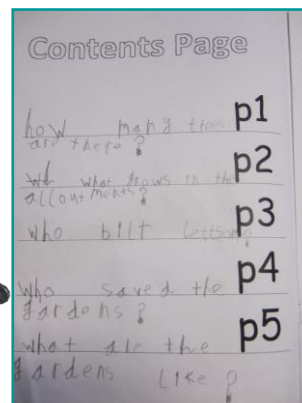 Contents Page
how many trees p1
are there?
what grows in the p2
alloutments?
who bilt lettsom? p3
who saved the p4
gardens?
what are the p5
gardens like?